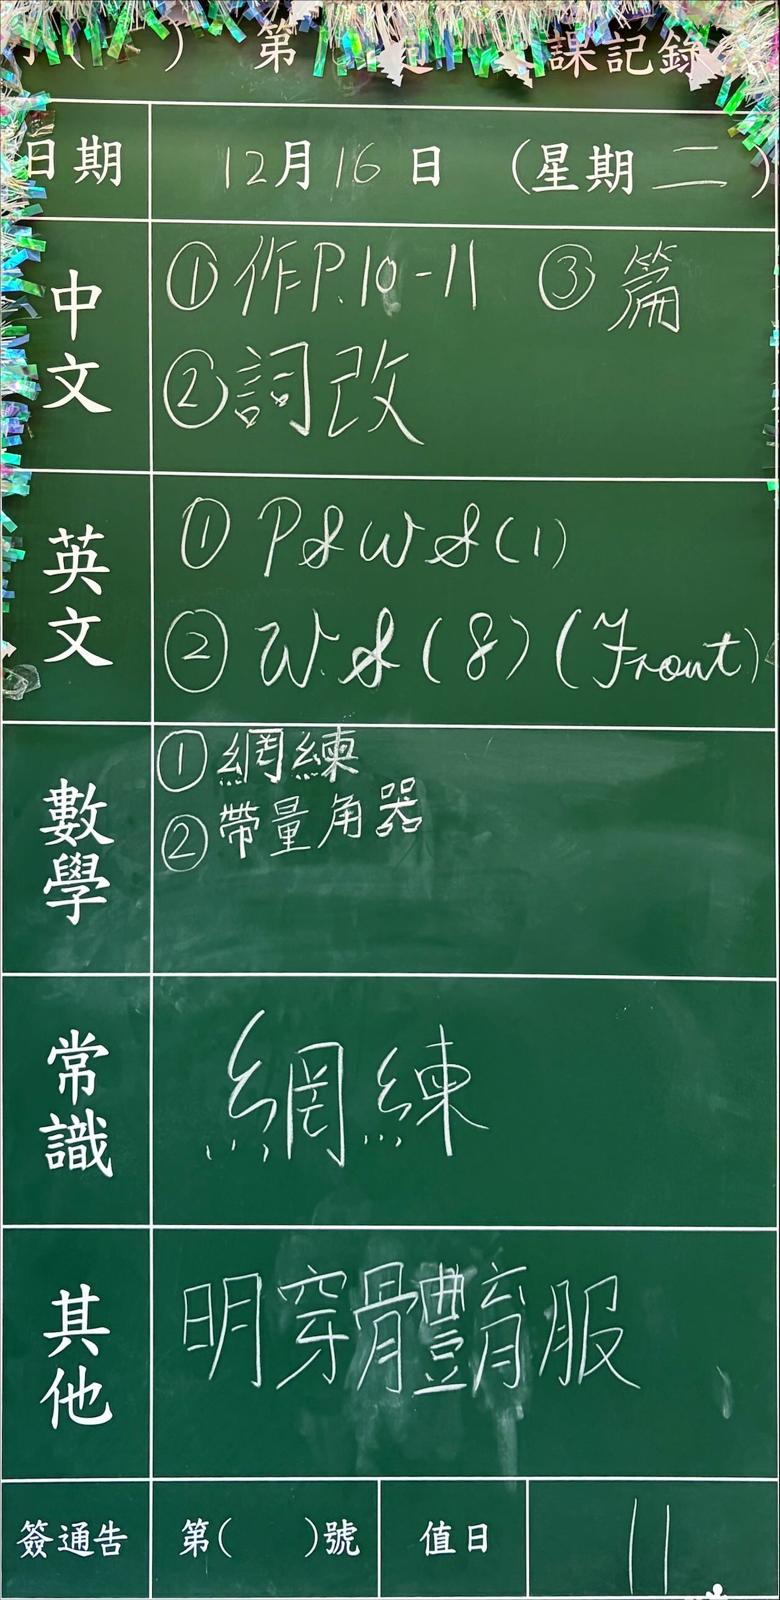 小( ) 第 課記錄
日期 12月16日 (星期二)
中文 ①作P.10-11 ③篇
②詞改
英文 ①PSWS(1)
②W.S(8)(Front)
數學 ①網練
②帶量角器
常識 網練
其他 明穿體育服
簽通告 第( )號 值日 11